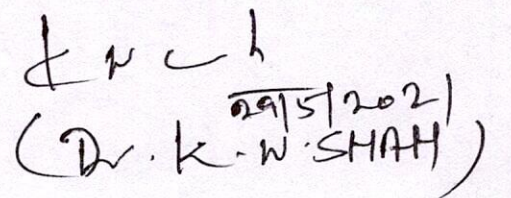 29/5/2021
(Dr. K. W. SHAH)